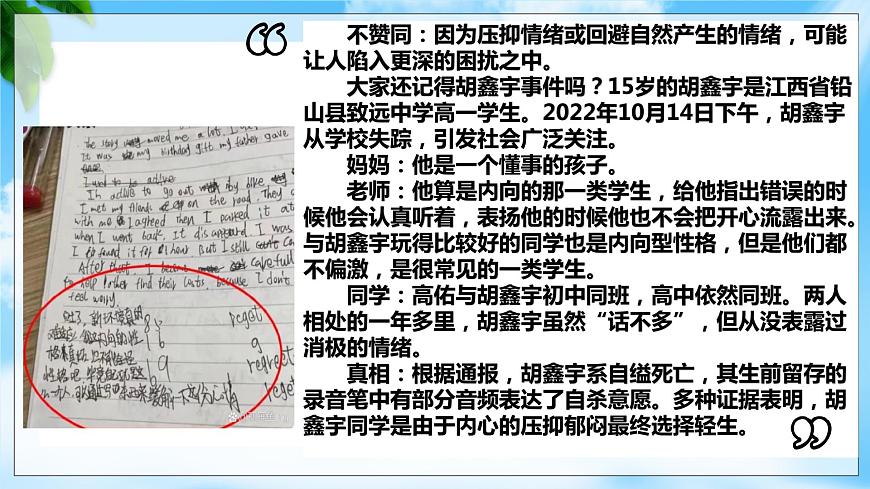 不赞同：因为压抑情绪或回避自然产生的情绪，可能
让人陷入更深的困扰之中。
大家还记得胡鑫宇事件吗？15岁的胡鑫宇是江西省铅
山县致远中学高一学生。2022年10月14日下午，胡鑫宇
从学校失踪，引发社会广泛关注。
妈妈：他是一个懂事的孩子。
老师：他算是内向的那一类学生，给他指出错误的时
候他会认真听着，表扬他的时候他也不会把开心流露出来。
与胡鑫宇玩得比较好的同学也是内向型性格，但是他们都
不偏激，是很常见的一类学生。
同学：高佑与胡鑫宇初中同班，高中依然同班。两人
相处的一年多里，胡鑫宇虽然“话不多”，但从没表露过
消极的情绪。
真相：根据通报，胡鑫宇系自缢死亡，其生前留存的
录音笔中有部分音频表达了自杀意愿。多种证据表明，胡
鑫宇同学是由于内心的压抑郁闷最终选择轻生。
the story moved me a lot.
It was my birthday gift my father gave
to go out by bike
I met my friends on the road. They
with me I agreed then I parked it at
when I went back. It disappeared. I was
found it for hour But I still
After that I became careful
help other find their because I don't
feel worry.
reget
regrect